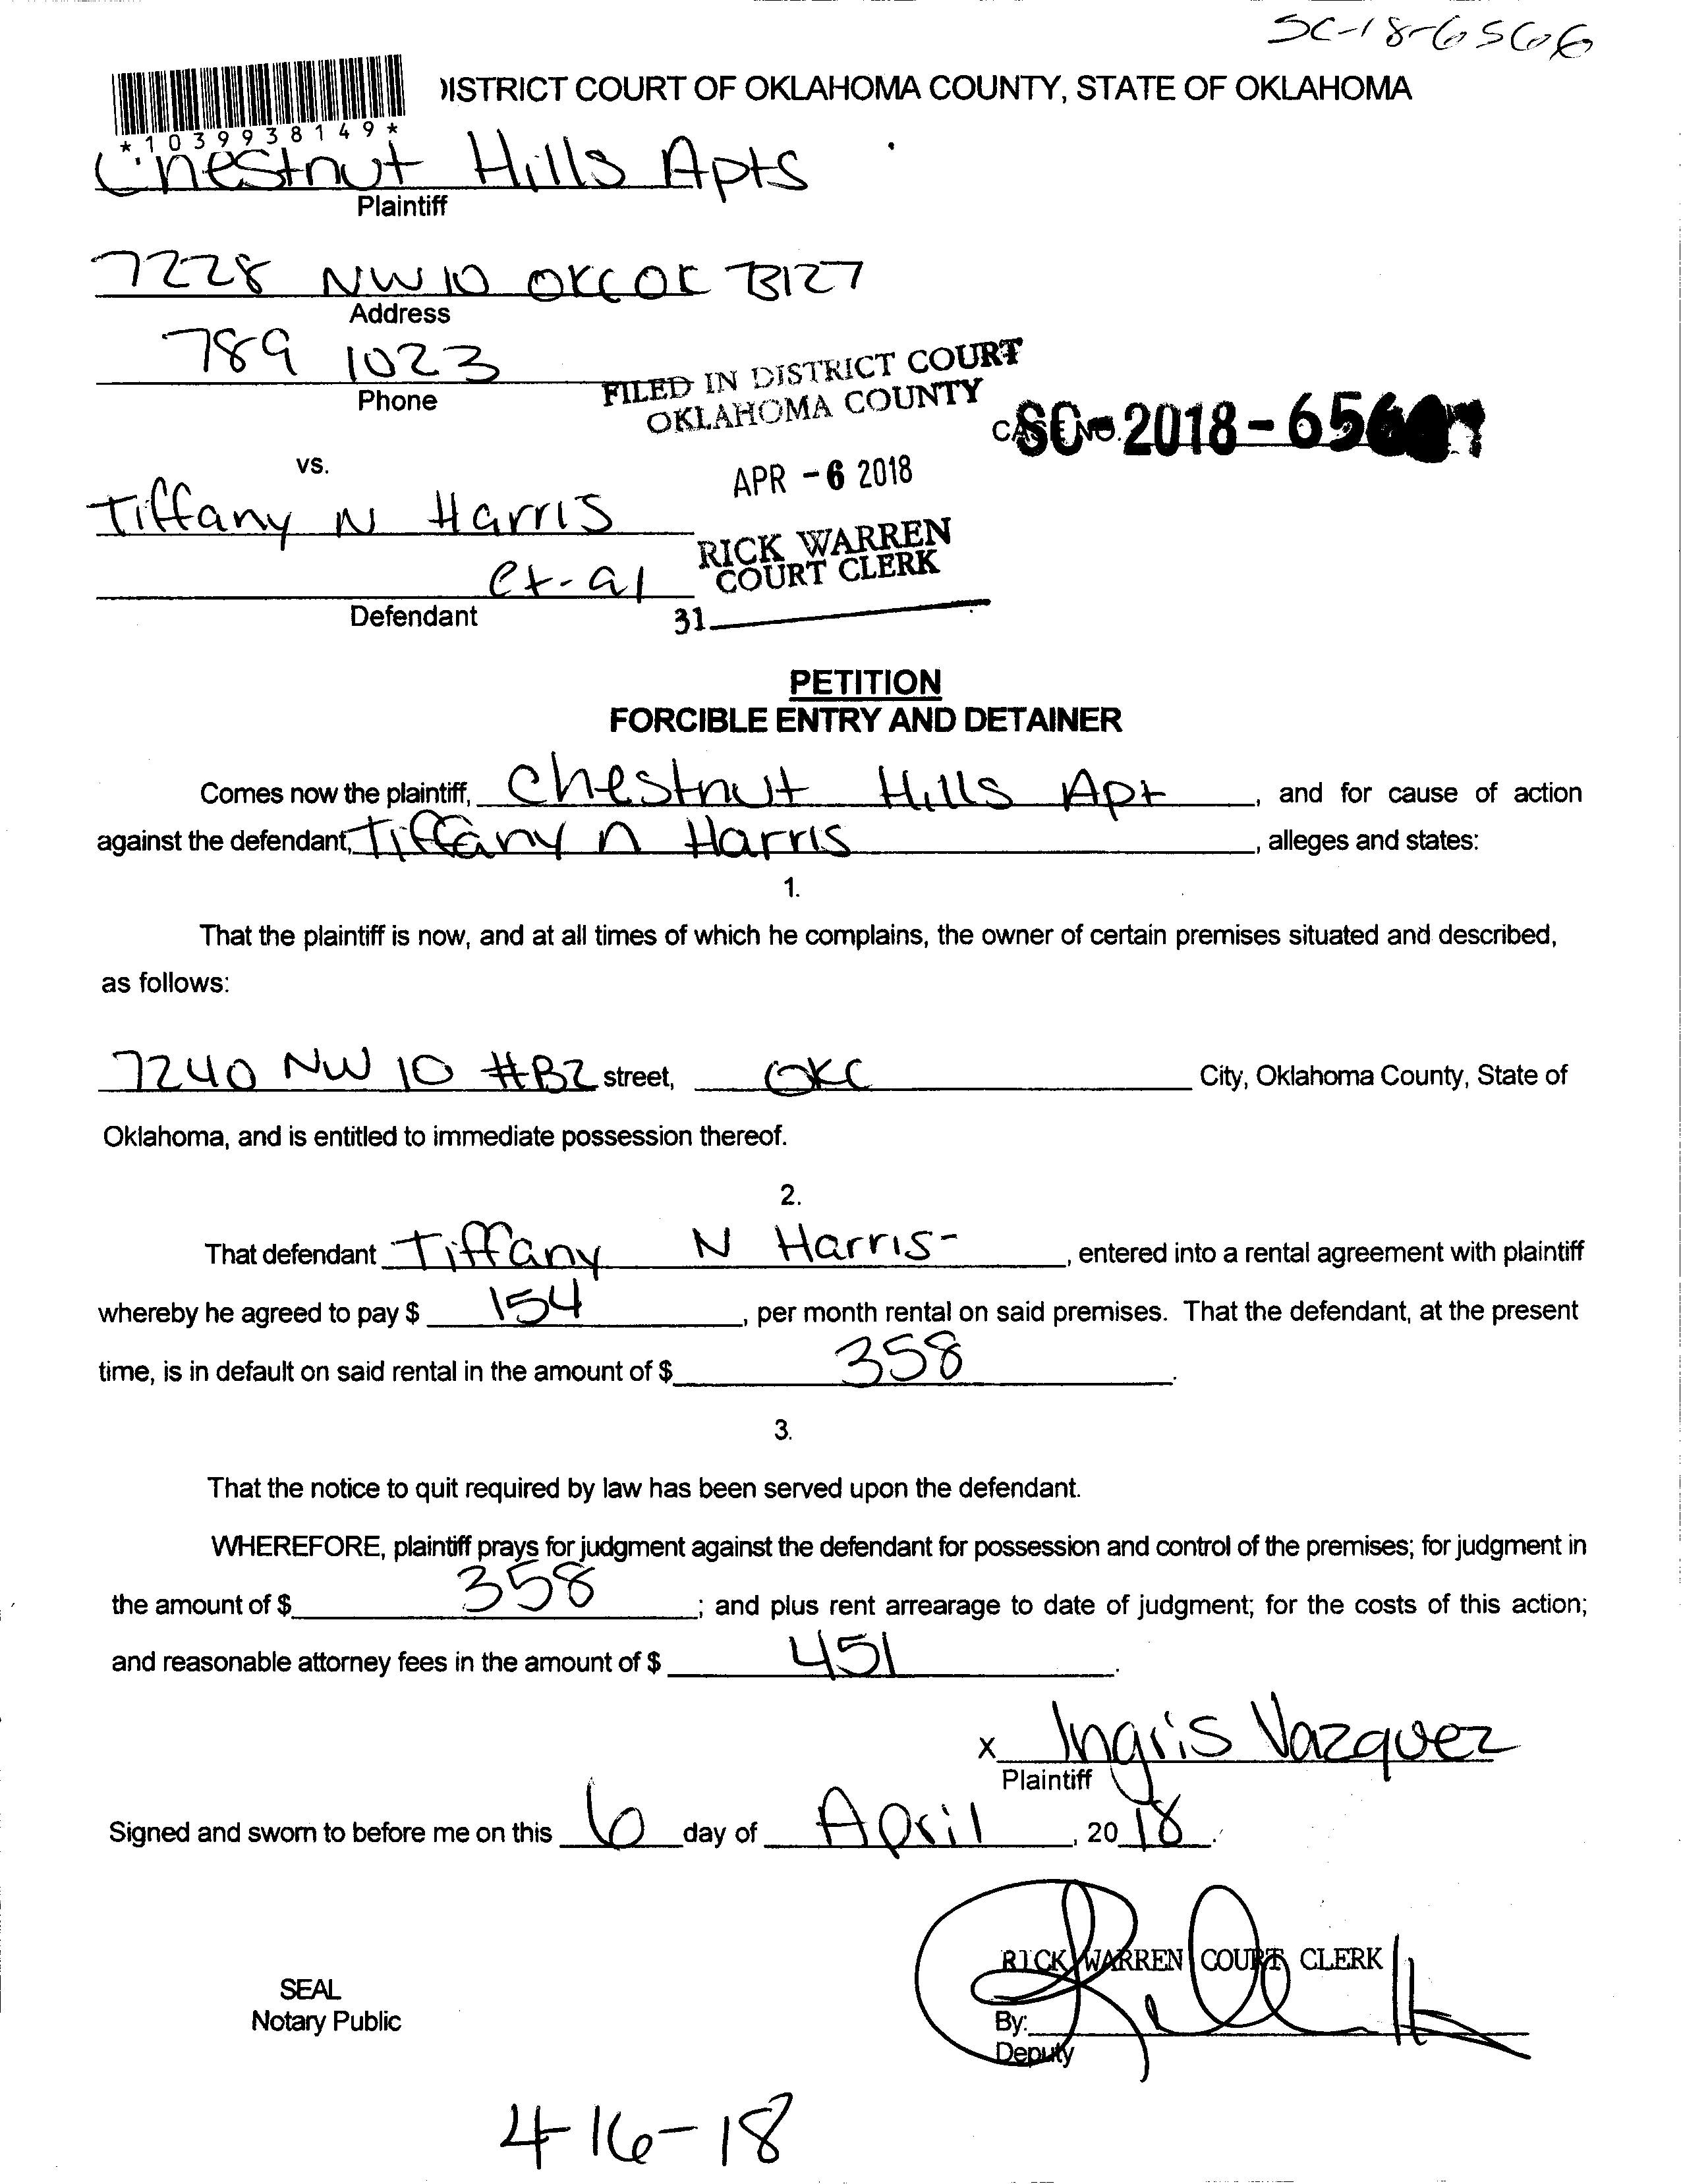 SC-18-6566
DISTRICT COURT OF OKLAHOMA COUNTY, STATE OF OKLAHOMA
*1039938149*
Chestnut Hills Apts
Plaintiff
7228 NW 10 OKC OK 73127
Address
789 1023
Phone
FILED IN DISTRICT COURT
OKLAHOMA COUNTY
CASE NO. SC-2018-656
vs.
APR -6 2018
Tiffany N Harris
RICK WARREN
COURT CLERK
et-al
Defendant
31
PETITION
FORCIBLE ENTRY AND DETAINER
Comes now the plaintiff, Chestnut Hills Apt, and for cause of action
against the defendant, Tiffany N Harris, alleges and states:
1.
That the plaintiff is now, and at all times of which he complains, the owner of certain premises situated and described,
as follows:
7240 NW 10 #B2 street, OKC City, Oklahoma County, State of
Oklahoma, and is entitled to immediate possession thereof.
2.
That defendant Tiffany N Harris-, entered into a rental agreement with plaintiff
whereby he agreed to pay $ 154, per month rental on said premises. That the defendant, at the present
time, is in default on said rental in the amount of $ 358.
3.
That the notice to quit required by law has been served upon the defendant.
WHEREFORE, plaintiff prays for judgment against the defendant for possession and control of the premises; for judgment in
the amount of $ 358; and plus rent arrearage to date of judgment; for the costs of this action;
and reasonable attorney fees in the amount of $ 451.
x Ingris Vazquez
Plaintiff
Signed and sworn to before me on this 6 day of April, 2018.
RICK WARREN COURT CLERK
SEAL
Notary Public
By:
Deputy
4-16-18